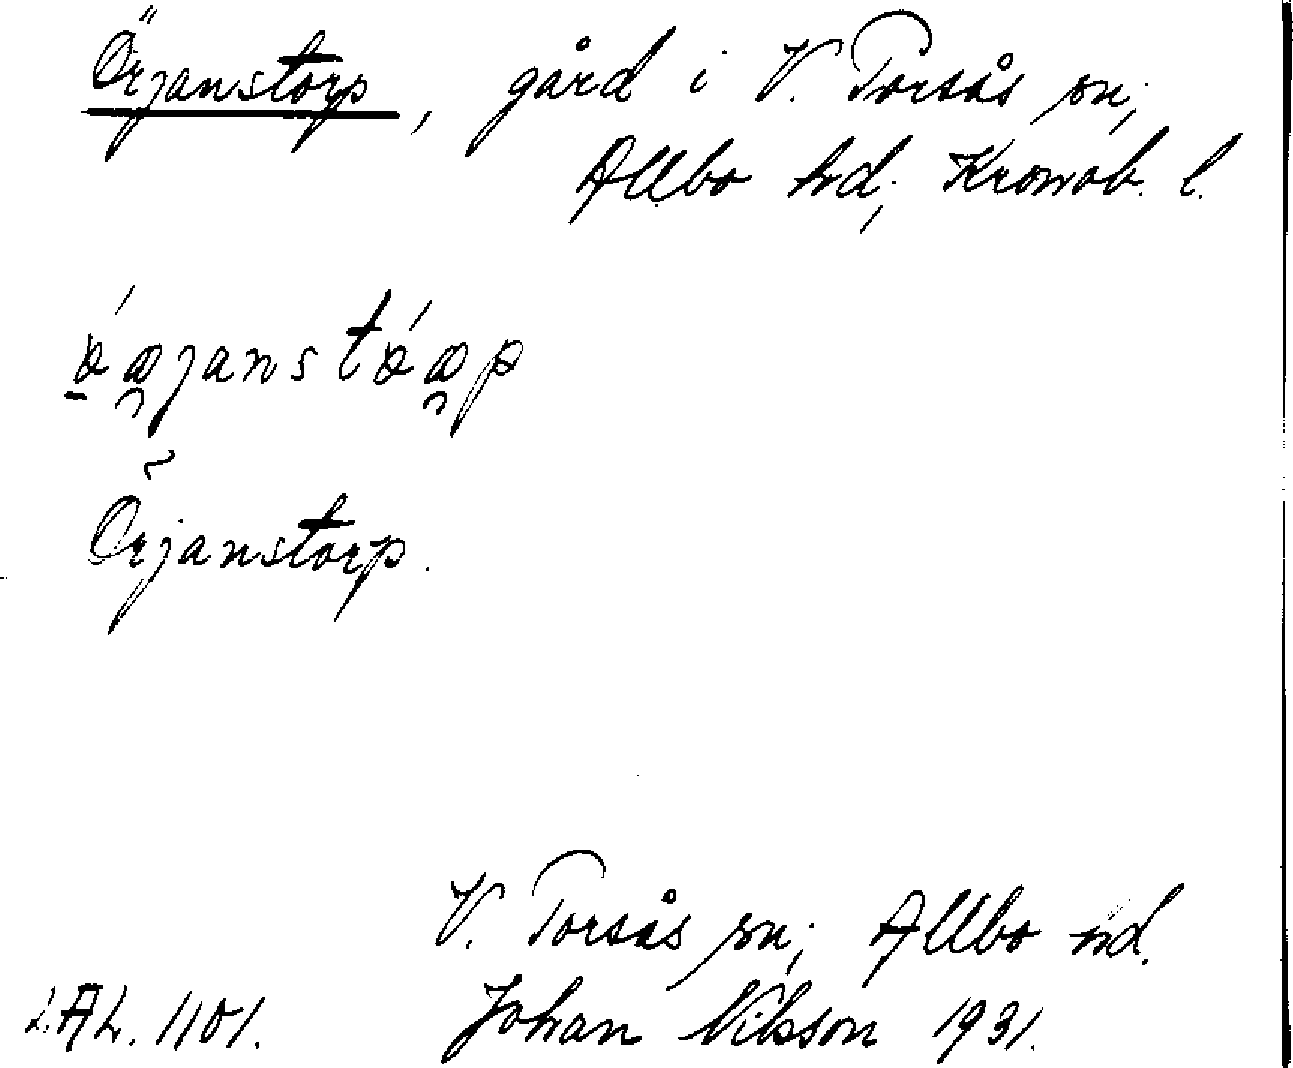 Örjanstorp, gård i V. Torsås sn;
Allbo hd; Kronob. l.
Örjanstorp.
V. Torsås sn; Allbo hd.
LAL. 1101. Johan Nilsson 1931.